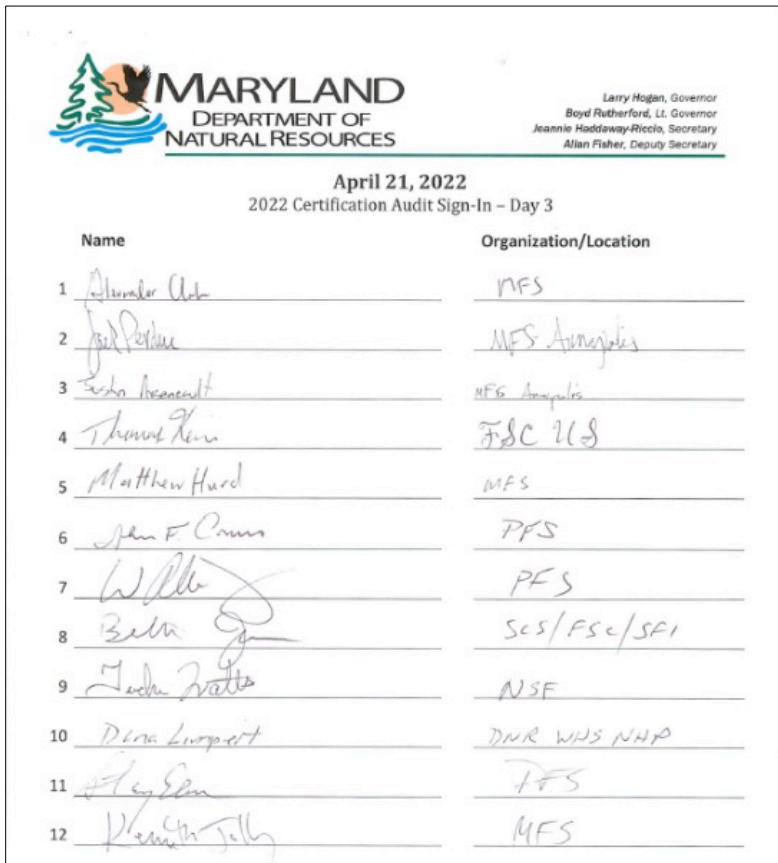 MARYLAND
DEPARTMENT OF
NATURAL RESOURCES
Larry Hogan, Governor
Boyd Rutherford, Lt. Governor
Jeannie Haddaway-Riccio, Secretary
Allan Fisher, Deputy Secretary
April 21, 2022
2022 Certification Audit Sign-In – Day 3
Name Organization/Location
1 Alexander MFS
2 Joel Perdue MFS Annapolis
3 Arseneault MFS Annapolis
4 Thomas FSC US
5 Matthew Hurd MFS
6 John F. PFS
7 PFS
8 Beth SCS/FSC/SFI
9 Watts NSF
10 Dana Limpert DNR WHS NHP
11 PFS
12 Kenneth Jolly MFS